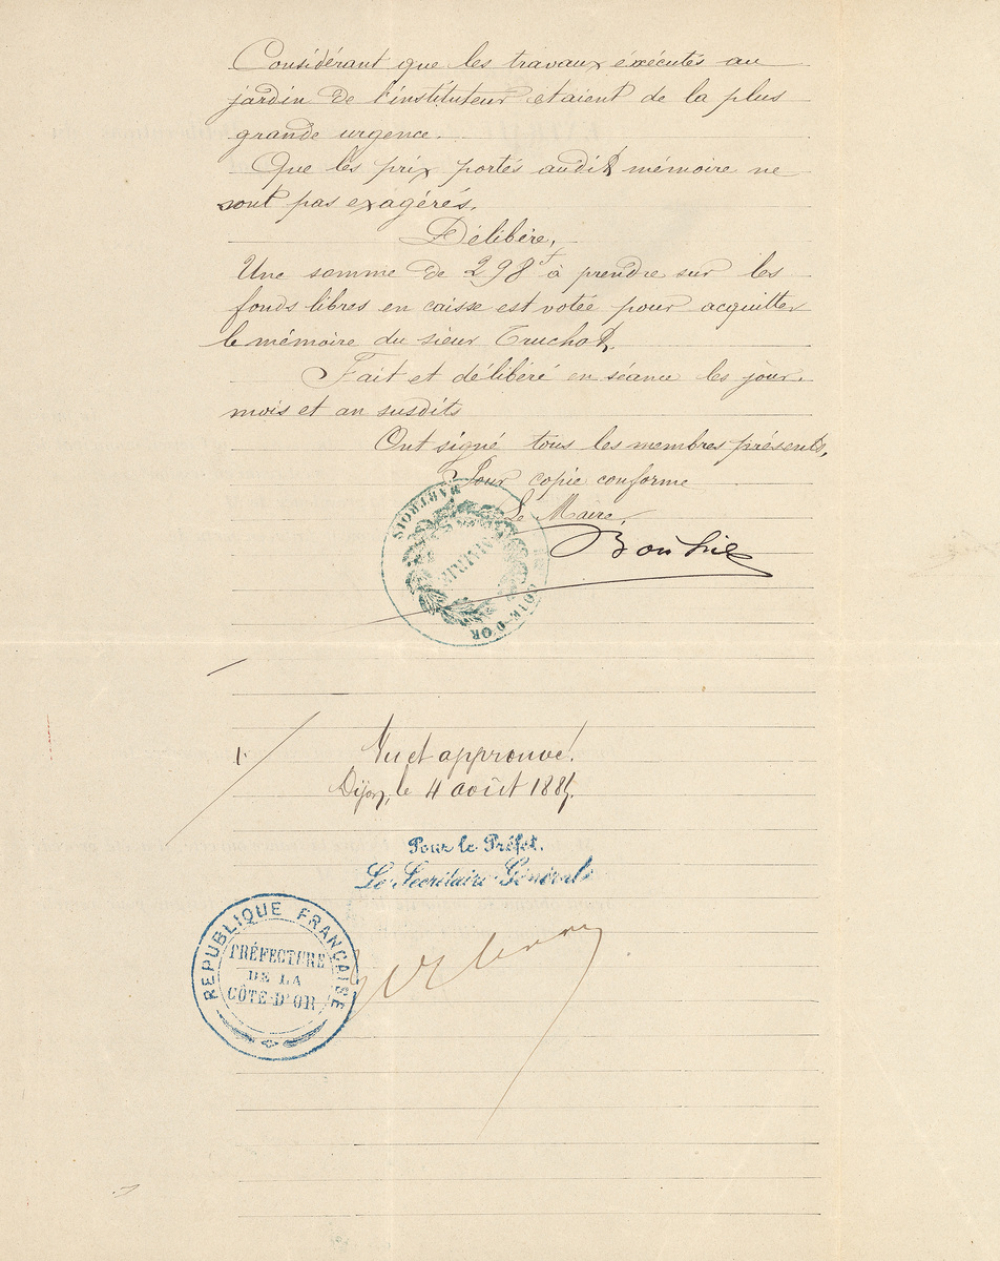 Considérant que les travaux éxécutés au
jardin de l'instituteur étaient de la plus
grande urgence.
Que les prix portés audit mémoire ne
sont pas exagérés.
Délibère,
Une somme de 298f à prendre sur les
fonds libres en caisse est votée pour acquitter
le mémoire du sieur Truchot.
Fait et délibéré en séance les jour,
mois et an susdits
Ont signé tous les membres présents,
Pour copie conforme
Le Maire,
MAIRIE
MARTROIS
CÔTE-D'OR
Vu et approuvé.
Dijon, le 4 août
Pour le Préfet.
Le Secrétaire Général
RÉPUBLIQUE FRANÇAISE
PRÉFECTURE
DE LA
CÔTE-D'OR